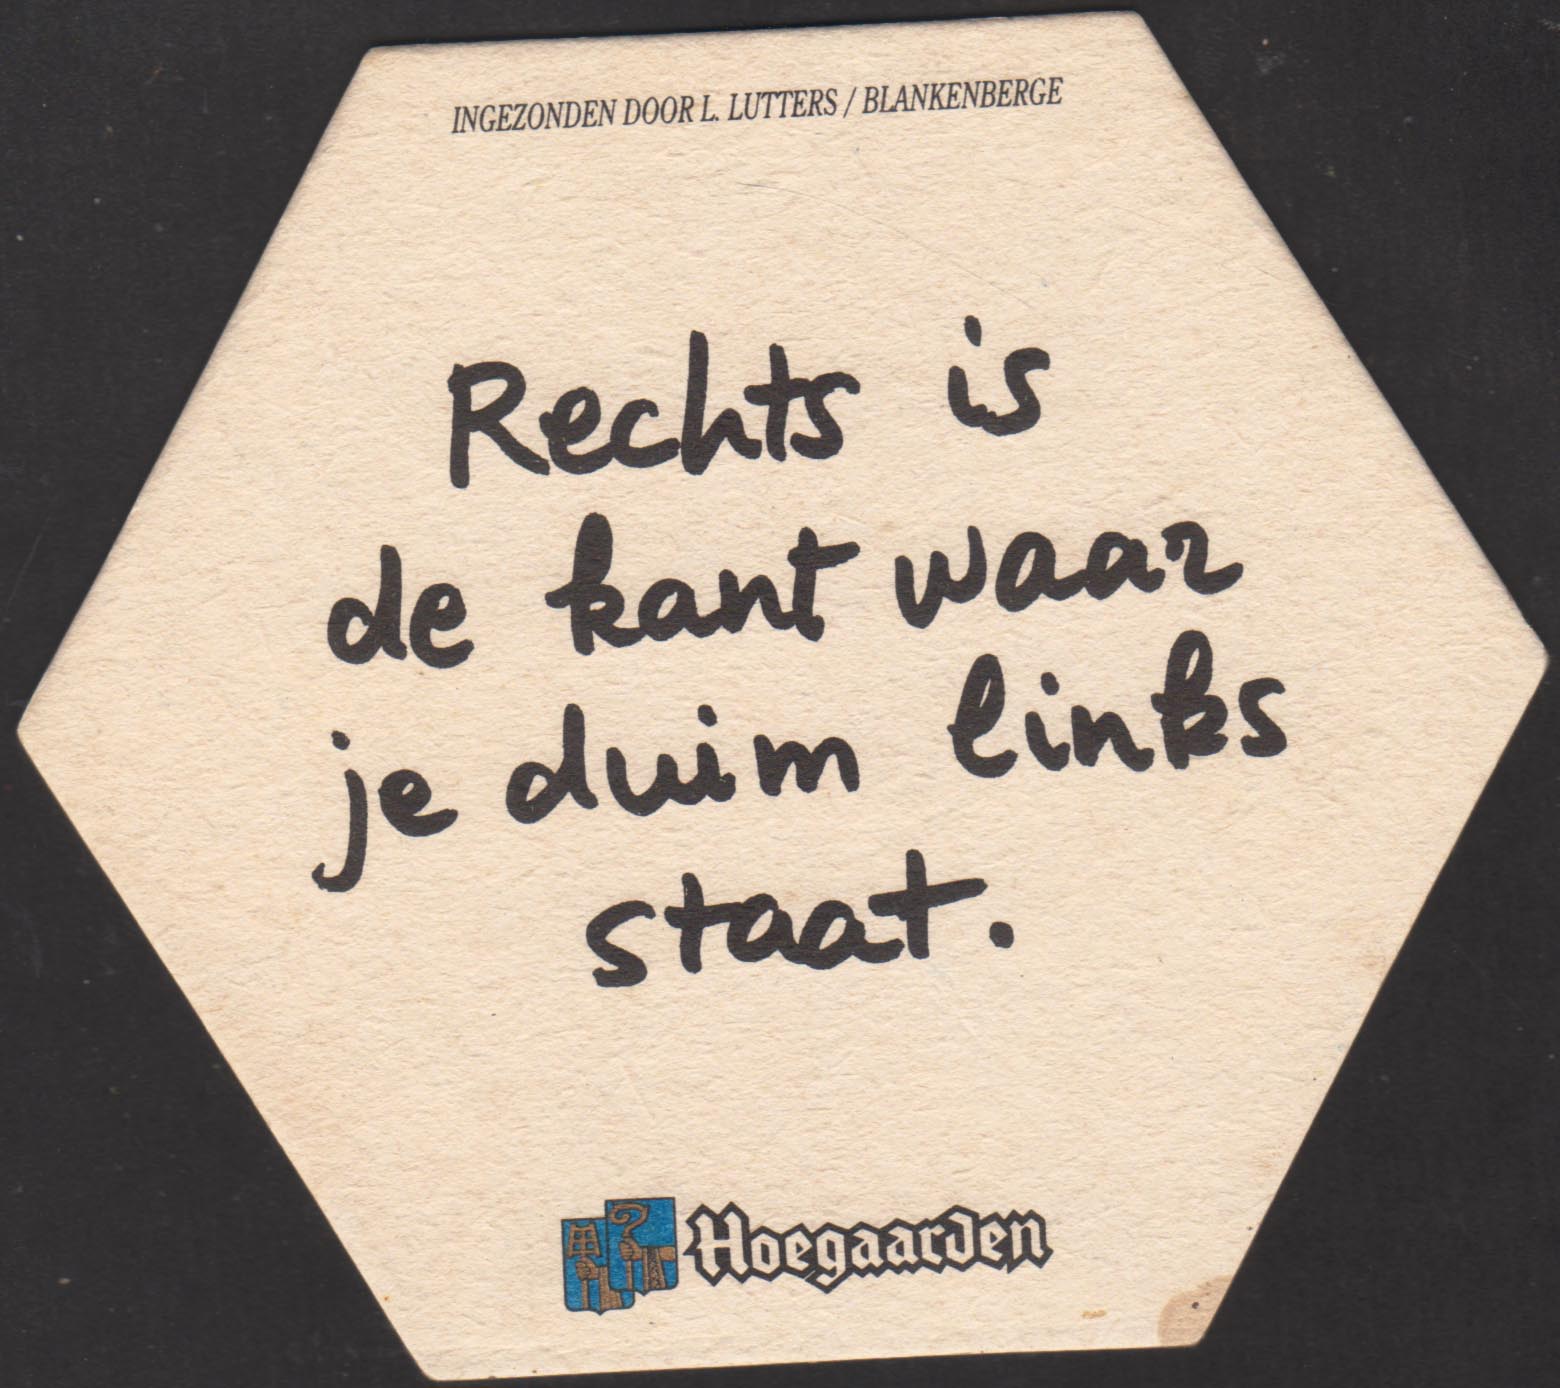 INGEZONDEN DOOR L. LUTTERS / BLANKENBERGE
Rechts is
de kant waar
je duim links
staat.
Hoegaarden